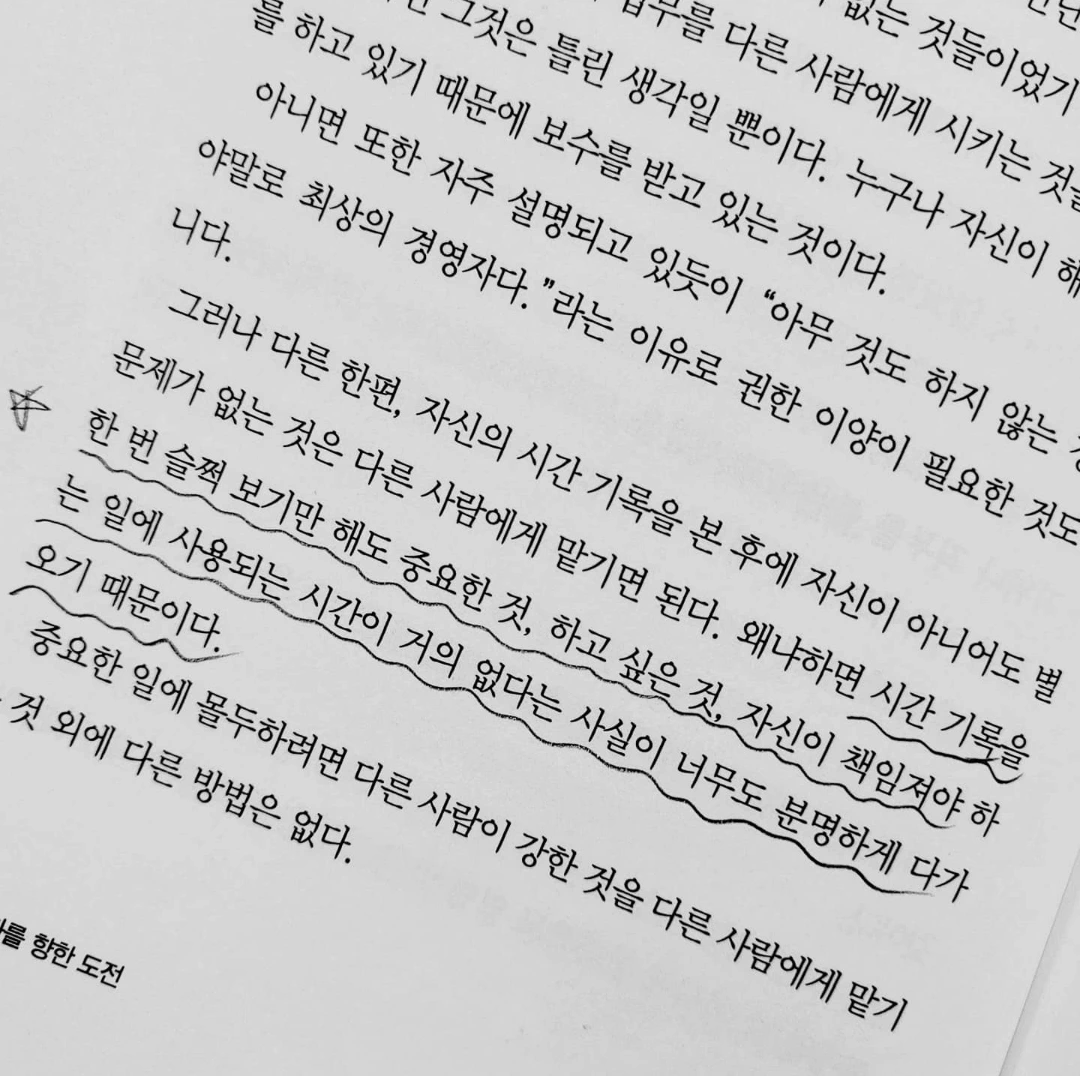 없는 것들이었기
업무를 다른 사람에게 시키는 것을
그것은 틀린 생각일 뿐이다. 누구나 자신이 해
를 하고 있기 때문에 보수를 받고 있는 것이다.
아니면 또한 자주 설명되고 있듯이 “아무 것도 하지 않는
야말로 최상의 경영자다.”라는 이유로 권한 이양이 필요한 것도
니다.
그러나 다른 한편, 자신의 시간 기록을 본 후에 자신이 아니어도 별
문제가 없는 것은 다른 사람에게 맡기면 된다. 왜냐하면 시간 기록을
한 번 슬쩍 보기만 해도 중요한 것, 하고 싶은 것, 자신이 책임져야 하
는 일에 사용되는 시간이 거의 없다는 사실이 너무도 분명하게 다가
오기 때문이다.
중요한 일에 몰두하려면 다른 사람이 강한 것을 다른 사람에게 맡기
것 외에 다른 방법은 없다.
를 향한 도전